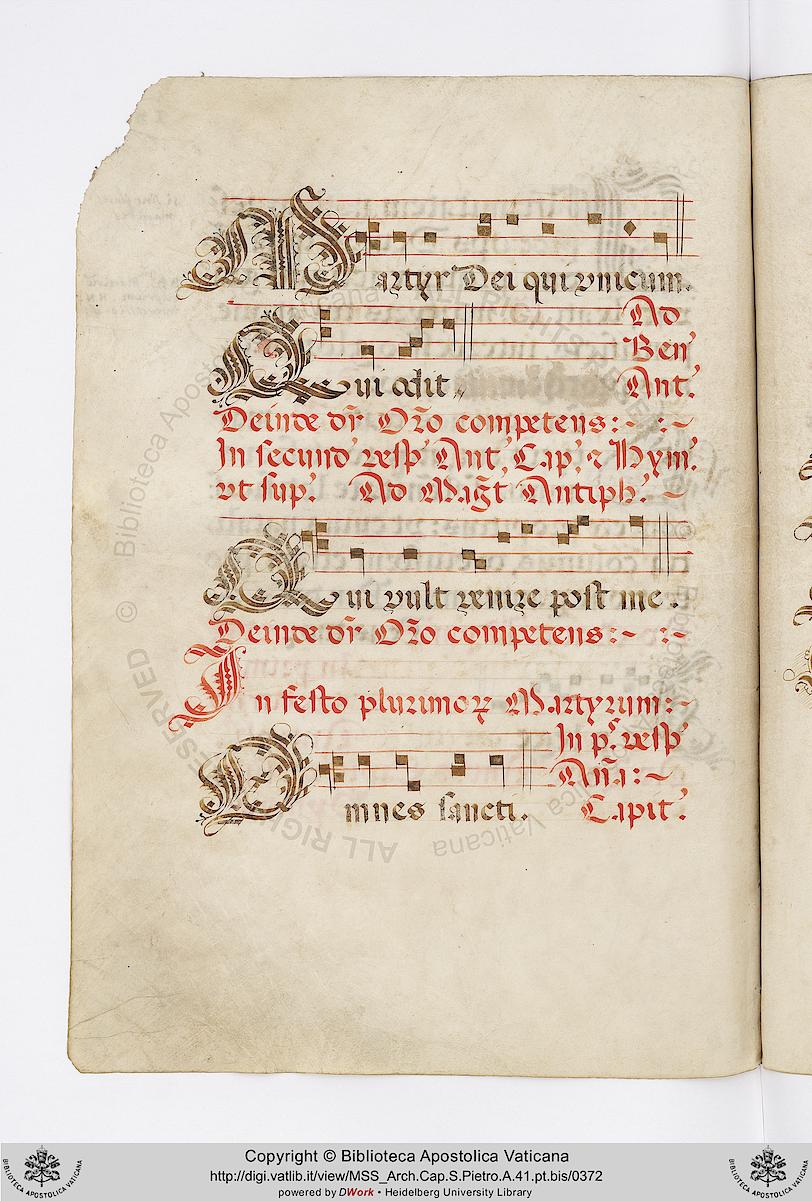 Martyr Dei qui vnicum.
Ad
Ben'
Qui odit Ant.
Deinde dr̃ Orõ competens:~ :~
In secund' resp' Ant', Cap', & Hym'.
vt sup'. Ad Mag̃t Antiph'. ~
Qui vult venire post me.
Deinde dr̃ Orõ competens:~ :~
In festo plurimoꝝ Martyrum:~
In p.' resp'
Añа:~
Omnes sancti. Capit'.
© Biblioteca Apostolica Vaticana
ALL RIGHTS RESERVED
BIBLIOTECA APOSTOLICA VATICANA
Copyright © Biblioteca Apostolica Vaticana
http://digi.vatlib.it/view/MSS_Arch.Cap.S.Pietro.A.41.pt.bis/0372
powered by DWork • Heidelberg University Library
BIBLIOTECA APOSTOLICA VATICANA